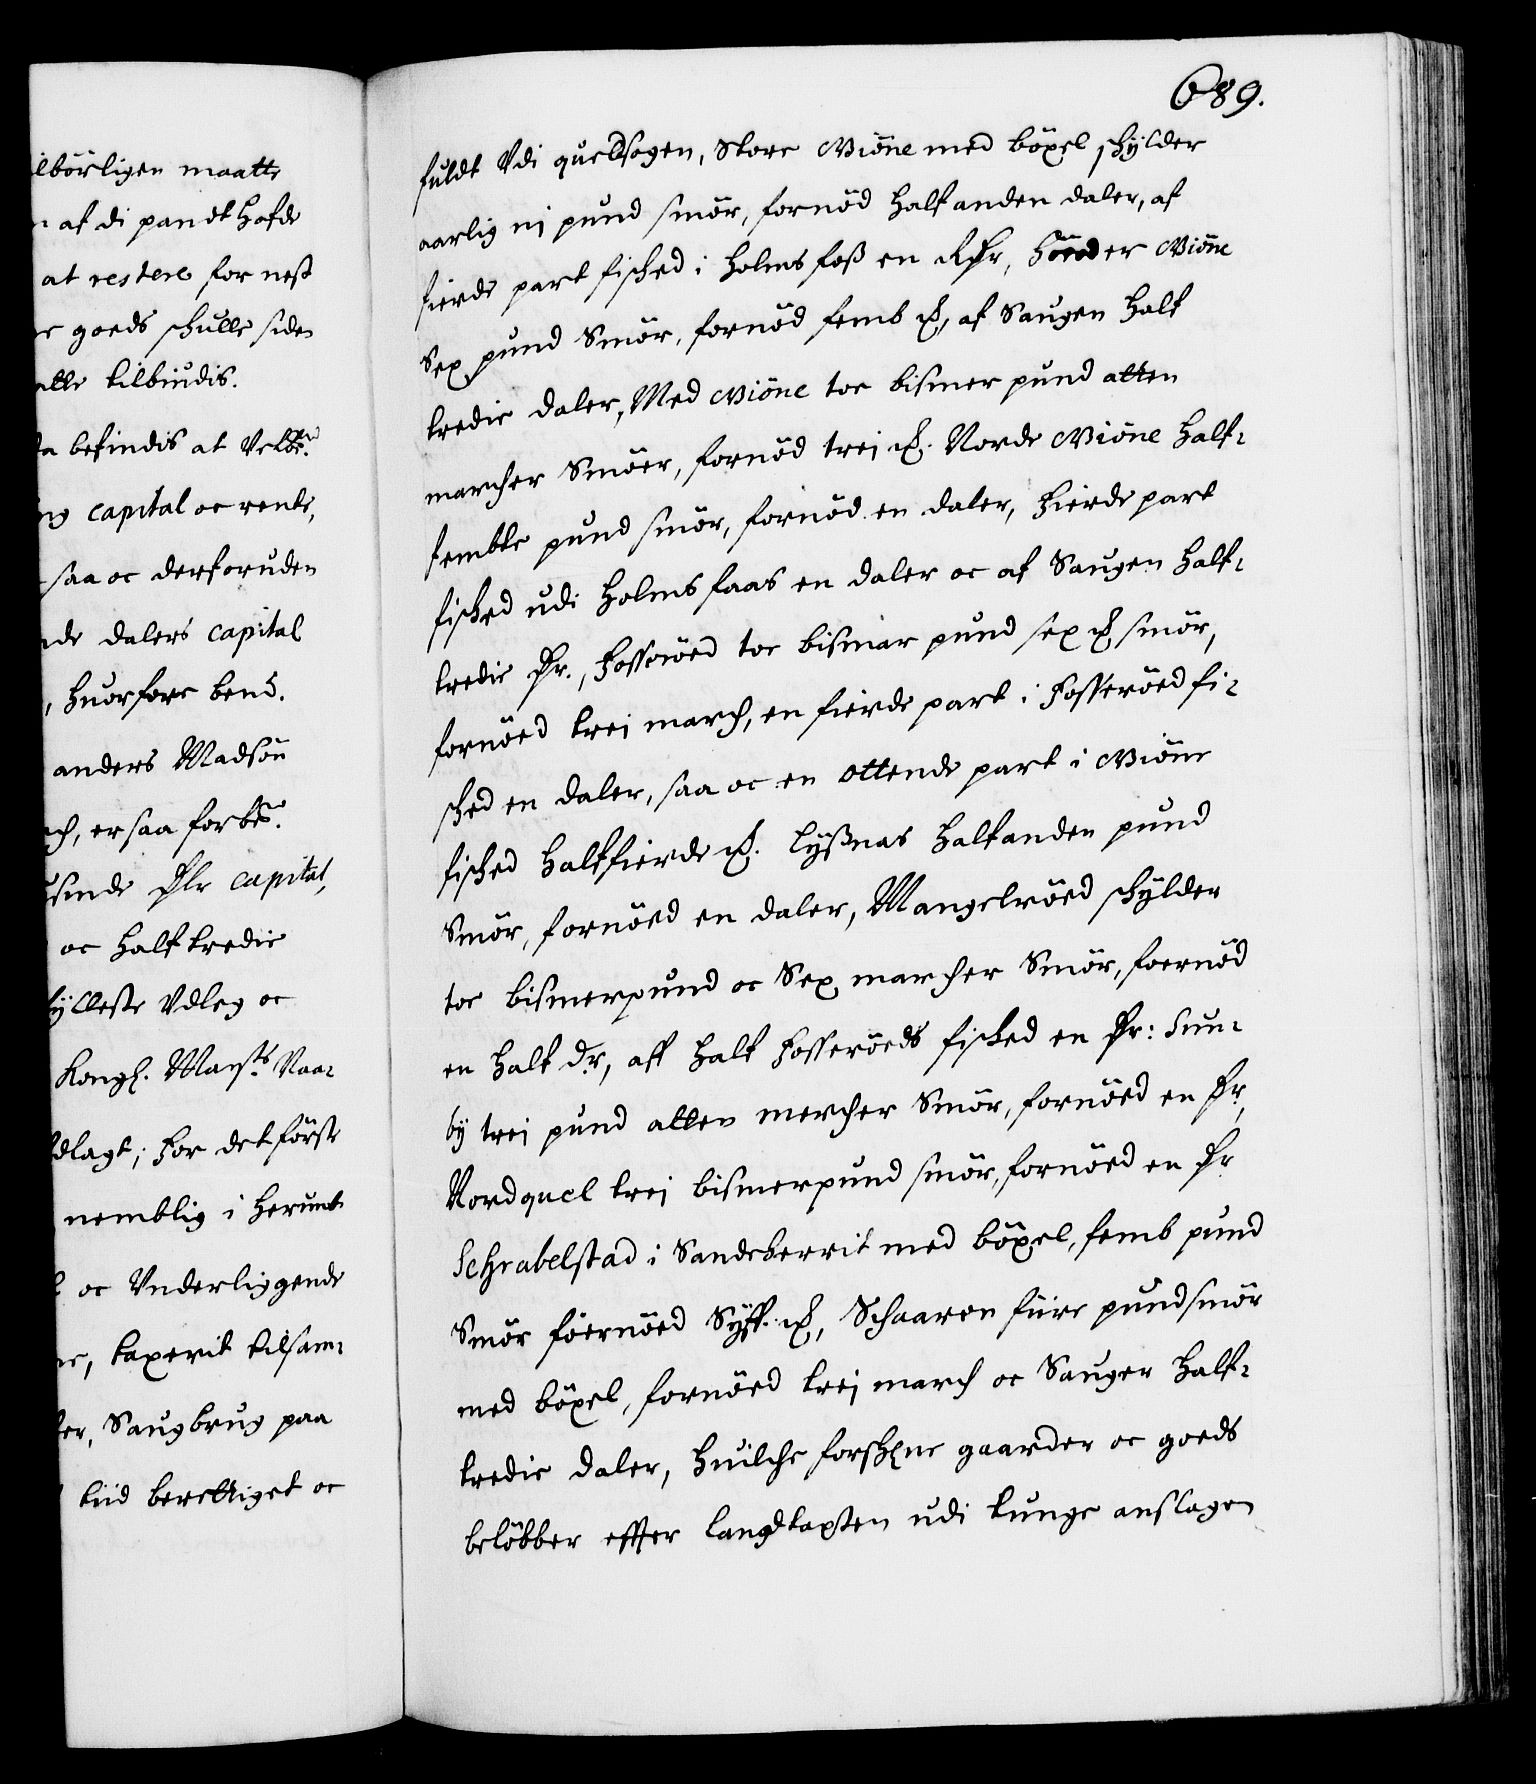 ilbörligen maatte
n af di pandt hafde
at restere for nest
er goeds schulle siden
atte tilbiudis.
ta befindis at Velbr.
ng capital oc rente,
saa oc derforuden
nde dalers capital
, huorfore bend.
anders Madsön
ch, er saa forbr.
usinde Dlr capital,
oc halftredie
fÿlleste Vdleg oc
Kongl. Mayts Naa-
dlagt; For det förste
nemblig i herunt
l oc Vnderliggende
ne, taxerit tilsam-
ter, Saugbrug paa
tiid berettiget oc
689.
fuldt Vdi quelsogen, Store Miöne med böxel schÿlder
aarlig nj pund smör, fornöd halfanden daler, af
fierde part fisched i holms foss en Rdr, Sönder Miöne
Sex pund Smör, fornöd femb ꝳ, af Saugen half
tredie daler, Med Miöne toe bismer pund atten
marcher Smöer, fornöd trej ꝳ. Norde Miöne half-
fembte pund smör, fornöd en daler, fierde part
fisched udi holms faas en daler oc af Saugen half-
tredie Dr., Fosseröed toe bismar pund sex ꝳ smör,
fornöed trej march, en fierde part i Fosseröed fi-
sched en daler, saa oc en ottende part i Miöne
fisched halffierde ꝳ. Lÿssnas halfanden pund
Smör, fornöed en daler, Mangelröed schÿlder
toe bismerpund oc Sex marcher Smör, foernöd
en half dr, aff half Fosseröeds fisched en Dr: Sun-
bÿ trej pund atten mercher Smör, fornöed en Dr,
Nordquel trej bismerpund smör, fornöed en Dr
Schrabelstad i Sandeberrit med böxel, femb pund
Smör föernöed Sÿff ꝳ, Schaaren fiire pund smör
med böxel, fornöed trej march oc Sauger half-
tredie daler, huilche forschne gaarder oc goeds
belöbber effter langdtaxten udi tunge anslagen